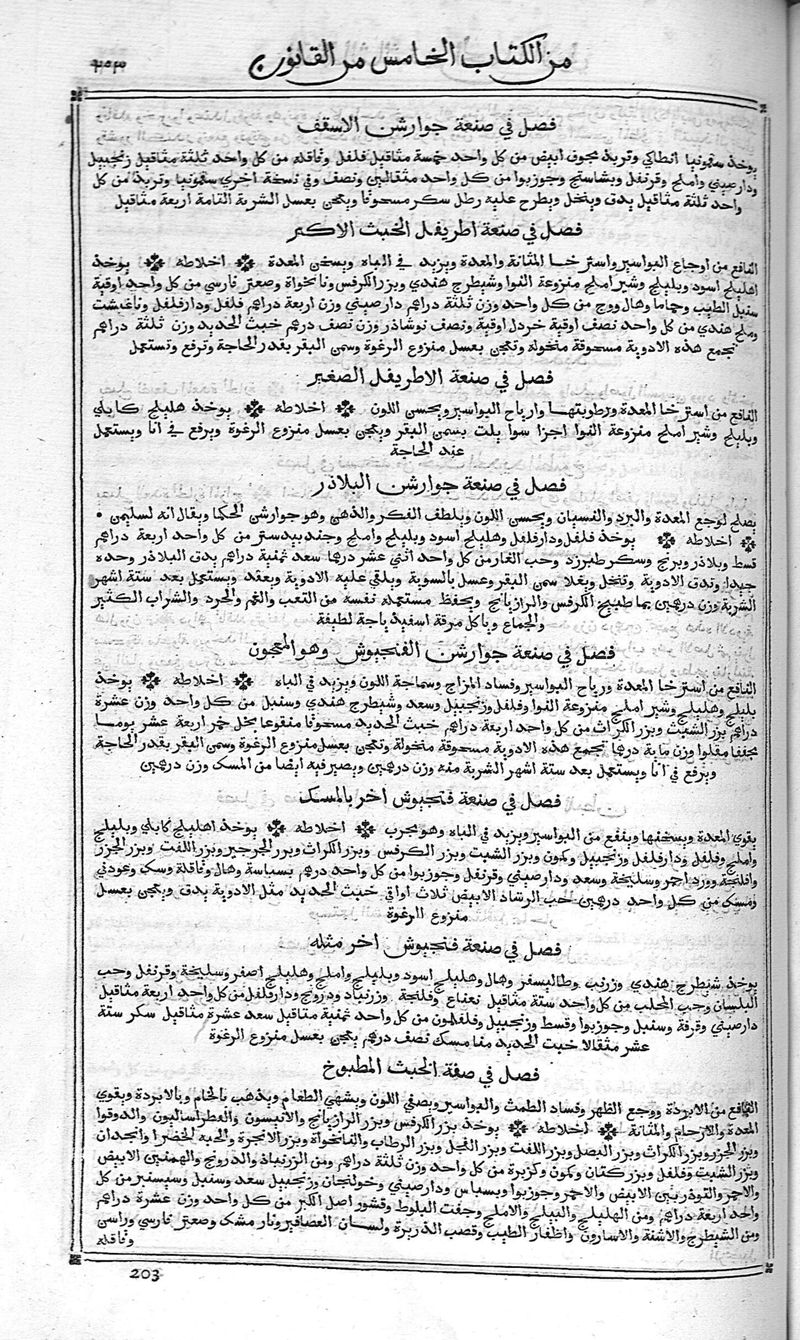 من الكتاب الخامس من القانون
فصل في صنعة جوارشن الاسقف
يوخذ سقمونيا انطاكي وتربد مجوف ابيض من كل واحد خمسة مثاقيل فلفل وقاقله من كل واحد ثلثة مثاقيل زنجبيل
ودارصيني واملج وقرنفل وبشاستج وجوزبوا من كل واحد مثقالين ونصف وفي نسخة اخري سقمونيا وتربد من كل
واحد ثلثة مثاقيل يدق وينخل ويطرح عليه رطل سكر مسحوقا ويعجن بعسل الشربة التامة اربعة مثاقيل
فصل في صنعة اطريفل الخبث الاكبر
النافع من اوجاع البواسير واسترخا المثانة والمعدة ويزيد في الباه ويسخن المعدة اخلاطه يوخذ
اهليلج اسود وبليلج وشير املج منزوعة النوا وشيطرج هندي وبزر الكرفس ونانخواة وصعتر فارسي من كل واحد اوقية
سنبل الطيب وحماما وهال ووج من كل واحد وزن ثلثة دراهم دارصيني وزن اربعة دراهم فلفل ودارفلفل ونانخشت
وملح هندي من كل واحد نصف اوقية خردل اوقية ونصف نوشاذر وزن نصف درهم خبث الحديد وزن ثلثة دراهم
تجمع هذه الادوية مسحوقة منخولة وتعجن بعسل منزوع الرغوة وسمن البقر بقدر الحاجة وترفع وتستعمل
فصل في صنعة الاطريفل الصغير
النافع من استرخا المعدة ورطوبتها وارياح البواسير ويحسن اللون اخلاطه يوخذ هليلج كابلي
وبليلج وشير املج منزوعة النوا اجزا سوا يلت بسمن البقر ويعجن بعسل منزوع الرغوة ويرفع في انا ويستعمل
عند الحاجة
فصل في صنعة جوارشن البلاذر
يصلح لوجع المعدة والبرد والنسيان ويحسن اللون ويلطف الفكر والذهن وهو جوارشن الحكما ويقال انه لسليمن
اخلاطه يوخذ فلفل ودارفلفل وهليلج اسود وبليلج واملج وجندبيدستر من كل واحد اربعة دراهم
قسط وبلاذر وبرنج وسكر طبرزد وحب الغار من كل واحد اثني عشر درهما سعد ثمنية دراهم يدق البلاذر وحده
جيدا وتدق الادوية وتنخل ويغلا سمن البقر وعسل بالسوية ويلقي عليه الادوية ويعقد ويستعمل بعد ستة اشهر
الشربة وزن درهمين بما طبيخ الكرفس والرازيانج ويحفظ مستعمله نفسه من التعب والغم والحرد والشراب الكثير
والجماع وياكل مرقة اسفيدباجة لطيفة
فصل في صنعة جوارشن الفنجيوش وهو المعجون
النافع من استرخا المعدة ورياح البواسير وفساد المزاج وسماجة اللون ويزيد في الباه اخلاطه يوخذ
بليلج وهليلج وشير املج منزوعة النوا وفلفل وزنجبيل وسعد وشيطرج هندي وسنبل من كل واحد وزن عشرة
دراهم بزر الشبث وبزر الكراث من كل واحد اربعة دراهم خبث الحديد مسحوقا منقوعا بخل خمر اربعة عشر يوما
مجففا مقلوا وزن ماية درهما تجمع هذه الادوية مسحوقة منخولة وتعجن بعسل منزوع الرغوة وسمن البقر بقدر الحاجة
ويرفع في انا ويستعمل بعد ستة اشهر الشربة منه وزن درهمين ويصير فيه ايضا من المسك وزن درهمين
فصل في صنعة فنجيوش اخر بالمسك
يقوي المعدة ويسخنها وينفع من البواسير ويزيد في الباه وهو مجرب اخلاطه يوخذ اهليلج كابلي وبليلج
واملج وفلفل ودارفلفل وزنجبيل وكمون وبزر الشبث وبزر الكرفس وبزر الكراث وبزر الجرجير وبزر اللفت وبزر الجزر
وافلنجة وورد احمر وسليخة وسعد ودارصيني وقرنفل وجوزبوا من كل واحد درهم بسباسة وهال وقاقلة وسك وعود ني
ومسك من كل واحد درهمين حب الرشاد الابيض ثلاث اواقي خبث الحديد مثل الادوية يدق ويعجن بعسل
منزوع الرغوة
فصل في صنعة فنجيوش اخر مثله
يوخذ شيطرج هندي وزرنب وطاليسفر وهال وهليلج اسود وبليلج واملج وهليلج اصفر وسليخة وقرنفل وحب
البلسان وحب المحلب من كل واحد ستة مثاقيل نعناع وفلنجة وزرنباد ودرونج ودارفلفل من كل واحد اربعة مثاقيل
دارصيني وقرفة وسنبل وجوزبوا وقسط وزنجبيل وفلفلمون من كل واحد ثمنية مثاقيل سعد عشرة مثاقيل سكر ستة
عشر مثقالا خبث الحديد منا مسك نصف درهم يعجن بعسل منزوع الرغوة
فصل في صفة الخبث المطبوخ
النافع من الابردة ووجع الظهر وفساد الطمث والبواسير ويصفي اللون ويشهي الطعام ويذهب بالخام وبالابردة ويقوي
المعدة والارحام والمثانة اخلاطه يوخذ بزر الكرفس وبزر الرازيانج والانيسون والفطراساليون والدوقوا
وبزر الجزر وبزر الكراث وبزر البصل وبزر اللفت وبزر الفجل وبزر الرطاب والنانخواة وبزر الانجرة والحبة الخضرا وانجدان
وبزر الشبث وفلفل وبزر كتان وكمون وكزبرة من كل واحد وزن ثلثة دراهم ومن الزرنباذ والدرونج والبهمنين الابيض
والاحمر والتوذريين الابيض والاحمر وجوزبوا وبسباس ودارصيني وخولنجان وزنجبيل سعد وسنبل وسيسنبر من كل
واحد اربعة دراهم ومن الهليلج والبليلج والاملج وجفت البلوط وقشور اصل الكبر من كل واحد وزن عشرة دراهم
ومن الشيطرج والاشنة والاسارون واظفار الطيب وقصب الذريرة ولسان العصافير ونار مشك وصعتر فارسي وراسن
وقاقله
203